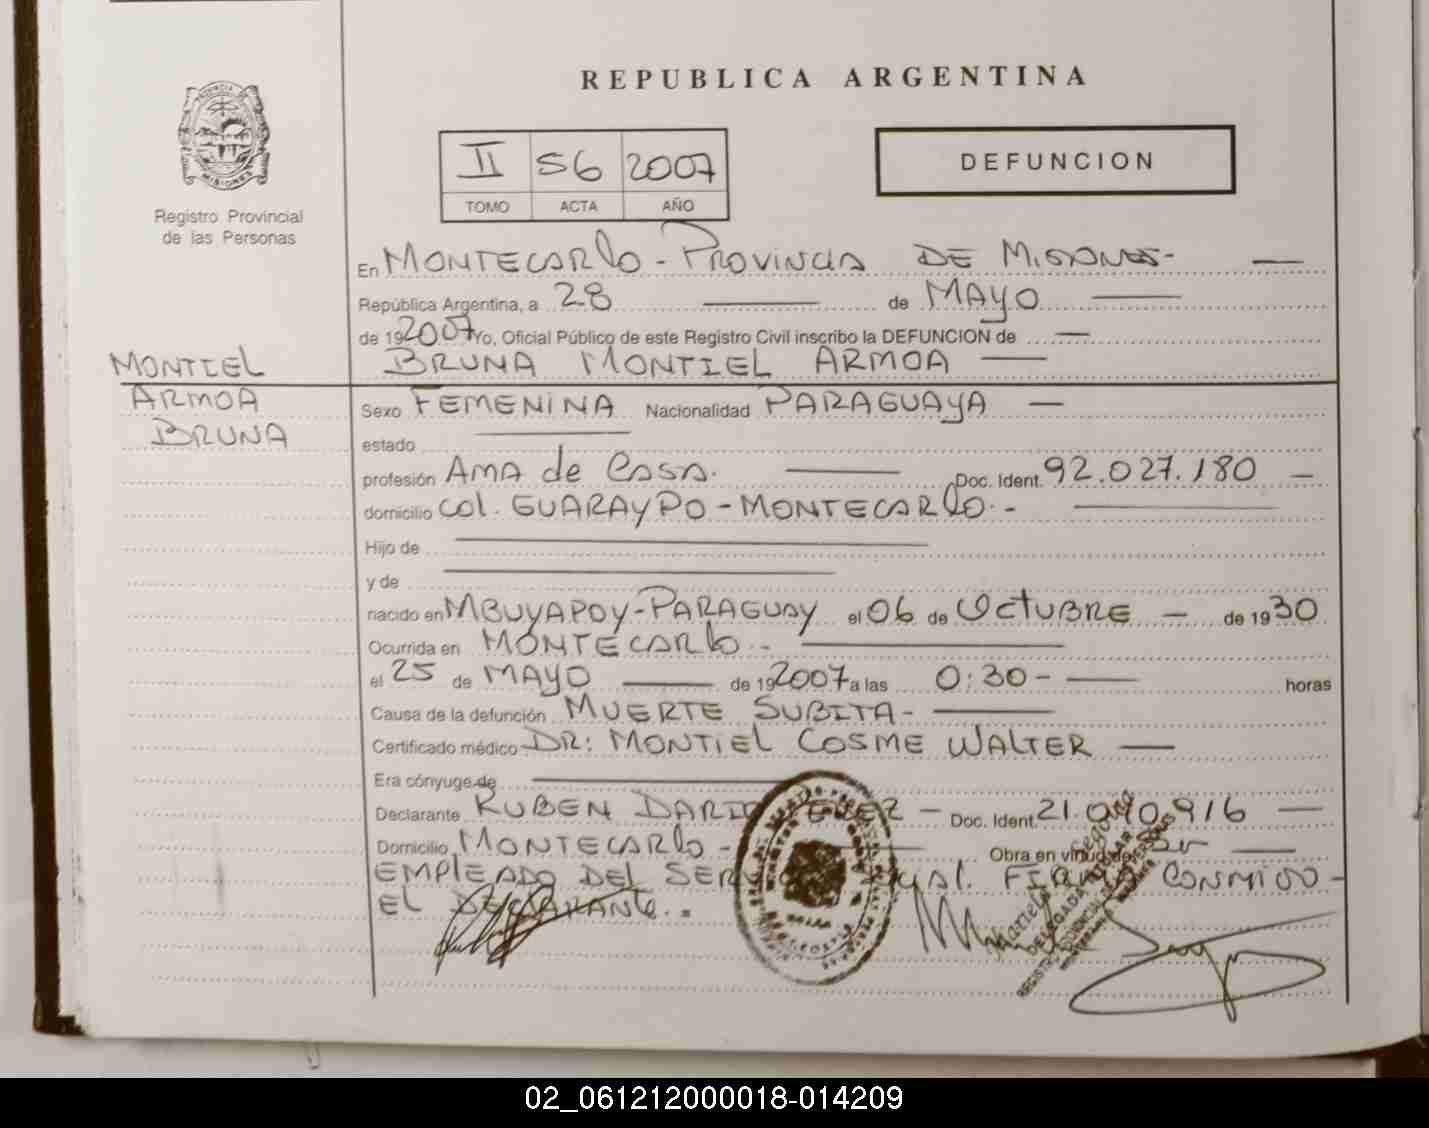 REPUBLICA ARGENTINA
PROVINCIA DE
MISIONES
Registro Provincial
de las Personas
II 56 2007
TOMO ACTA AÑO
DEFUNCION
En MONTECARLO - PROVINCIA DE MISIONES-
República Argentina, a 28 de MAYO
de 192007 Yo, Oficial Público de este Registro Civil inscribo la DEFUNCION de
BRUNA MONTIEL ARMOA
MONTIEL
ARMOA
BRUNA
Sexo FEMENINA Nacionalidad PARAGUAYA
estado
profesión AMA de CASA. Doc. Ident. 92.027.180
domicilio COL. GUARAYPO - MONTECARLO.-
Hijo de
y de
nacido en MBUYAPOY-PARAGUAY el 06 de OCTUBRE de 1930
Ocurrida en MONTECARLO.-
el 25 de MAYO de 192007 a las 0:30- horas
Causa de la defunción MUERTE SUBITA-
Certificado médico DR: MONTIEL COSME WALTER
Era cónyuge de
Declarante RUBEN DARIO Doc. Ident. 21.090.916
Domicilio MONTECARLO - Obra en virtud de
EMPLEADO DEL FIRMA CONMIGO-
EL DECLARANTE.-
02_061212000018-014209